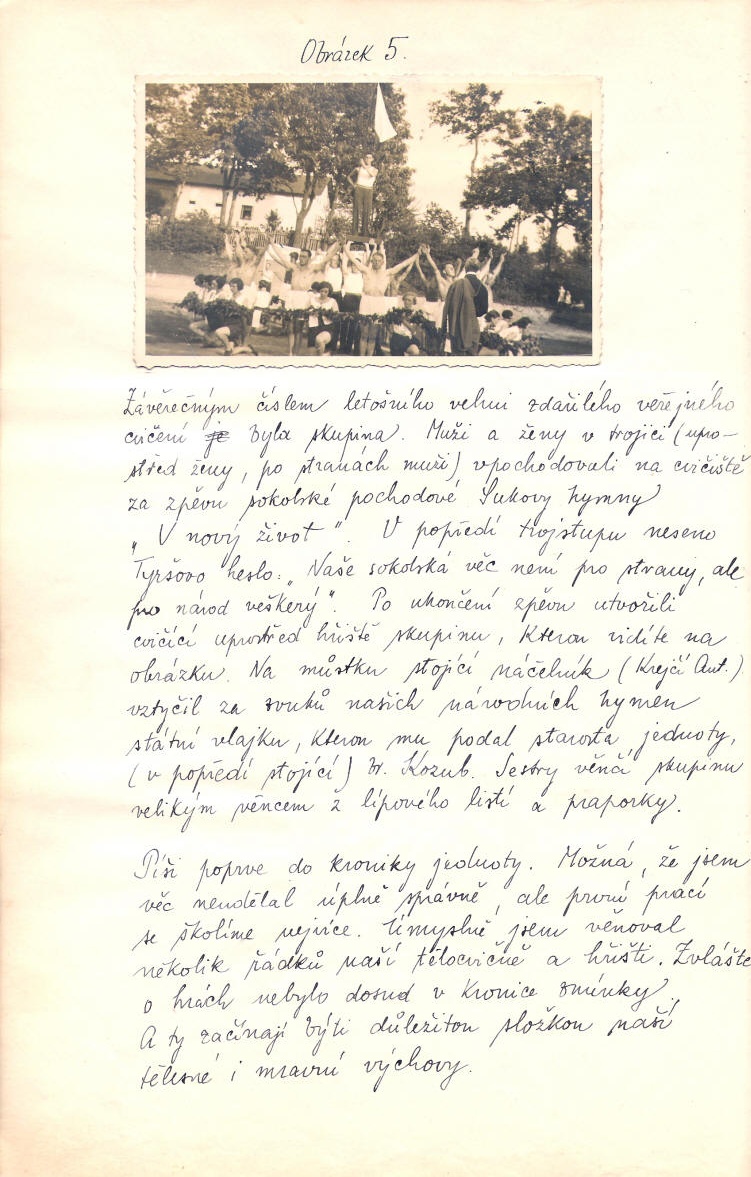 Obrázek 5.
Závěrečným číslem letošního velmi zdařilého veřejného
cvičení je byla skupina. Muži a ženy v trojici (upro-
střed ženy, po stranách muži) vpochodovali na cvičiště
za zpěvu sokolské pochodové Sukovy hymny
„V nový život". V popředí trojstupu neseno
Tyršovo heslo: „Naše sokolská věc není pro strany, ale
pro národ veškerý". Po ukončení zpěvu utvořili
cvičící uprostřed hřiště skupinu, kterou vidíte na
obrázku. Na můstku stojící náčelník (Krejčí Ant.)
vztyčil za zvuků našich národních hymen
státní vlajku, kterou mu podal starosta jednoty,
(v popředí stojící) br. Kozub. Sestry věnčí skupinu
velikým věncem z lípového listí a praporky.
Píši poprve do kroniky jednoty. Možná, že jsem
věc neudělal úplně správně, ale první prací
se školíme nejvíce. Úmyslně jsem věnoval
několik řádků naší tělocvičně a hřišti. Zvláště
o hrách nebylo dosud v kronice zmínky.
A ty začínají býti důležitou složkou naší
tělesné i mravní výchovy.